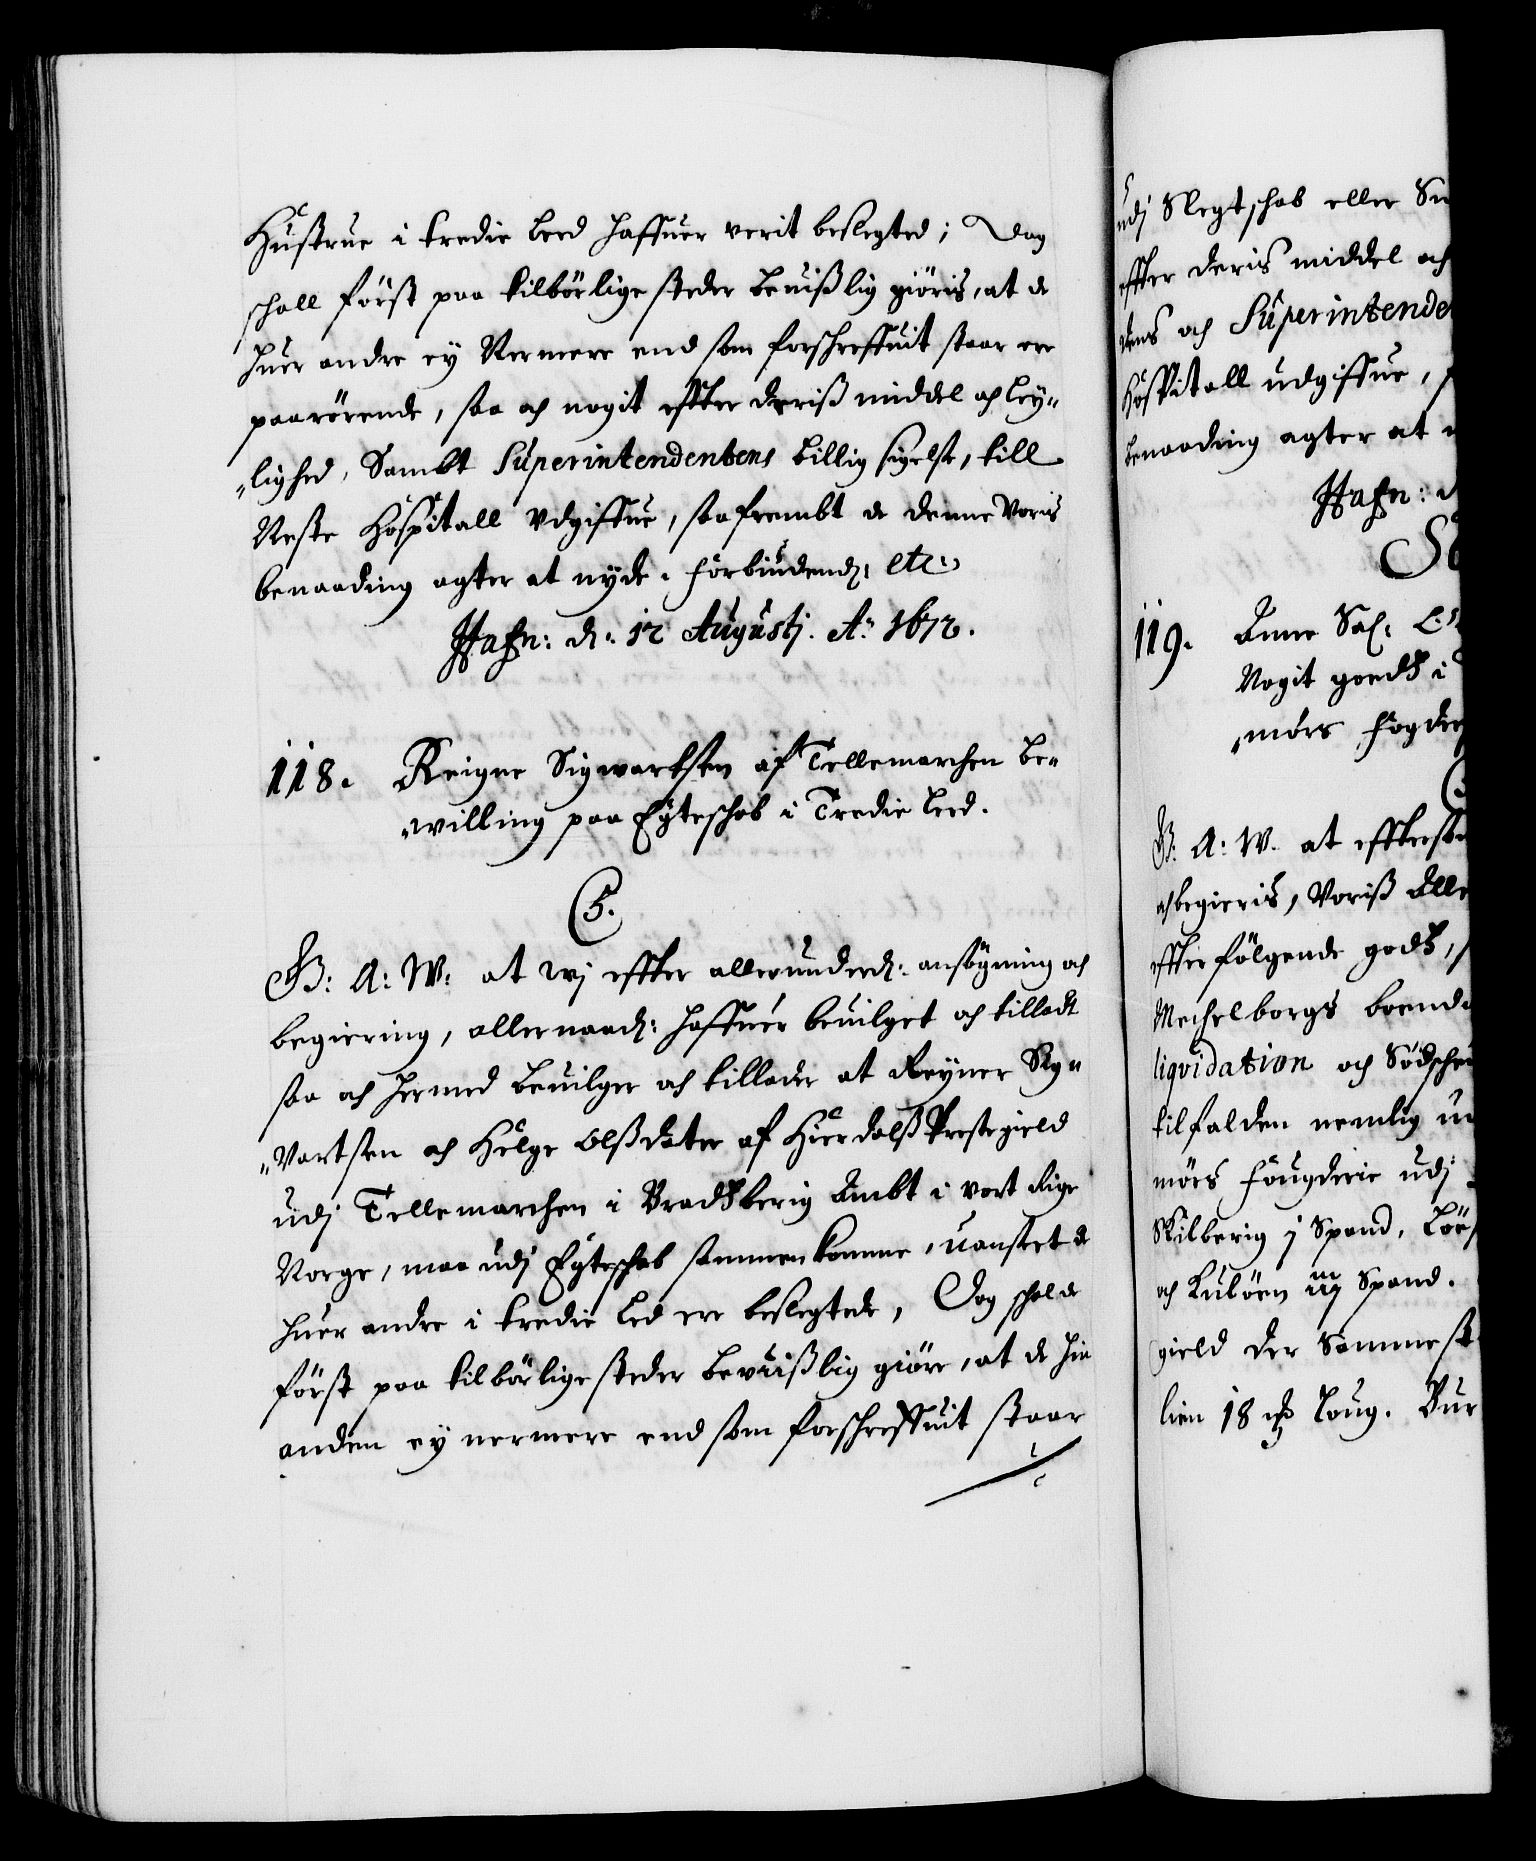 Hustrue i tredie Leed haffuer verit beslegted; Dog
schall först paa tilbörlige steder beuißlig giöris, at de
huer andre ey Nermere end som forschreffuit staar ere
paarörende, saa och nogit effter deriß middel och Ley„
„lighed, Sambt Superintendentens billig sigelse, till
Neste Hospitall Udgiffue, saafrembt de denne Voris
benaading agter at nyde. Forbiudend: etc:
Hafn: d: 12 Augustj. A: 1672.
118. Reigne Sigwartsen af Tellemarchen be„
„willing paa Egteschab i Tredie Leed.
C5.
G: A: W: at wj effter allerunderd: ansögning och
begiering, allernaad: haffuer beuilget och tilladt
saa och hermed beuilger och tillader at Reyner Sig„
„Vartsen och Helge Olßdater af Hierdalß Prestegield
udj Tellemarchen i Bradsberig Ambt i vort Rige
Norge, maa udj Egteschab sammen komme, uanseet de
huer andre i tredie Led ere beslegtede, Dog schal de
först paa tilbörlige steder bevißlig giöre, at de hin
anden ey nermere end som forschreffuit staar
udj Slegtschab eller Su
effter deris middel och
dens och Superintende
Hospitall udgiffue,
benaading agter at
Hafn: d
119. Anne Sal:
Nogit goeds i
„mörs Fogder
G: A: W. at effterso
och begieris, Voriß Alle
effterfölgende gods,
Mechelborgs boend
liqvidation och Södsche
tilfalden nemlig ud
mörs Fougderie udj
Skilberig j Spand,
och Kulöen iij Spand.
gield der Sammest
lien 18 Loug. Bur